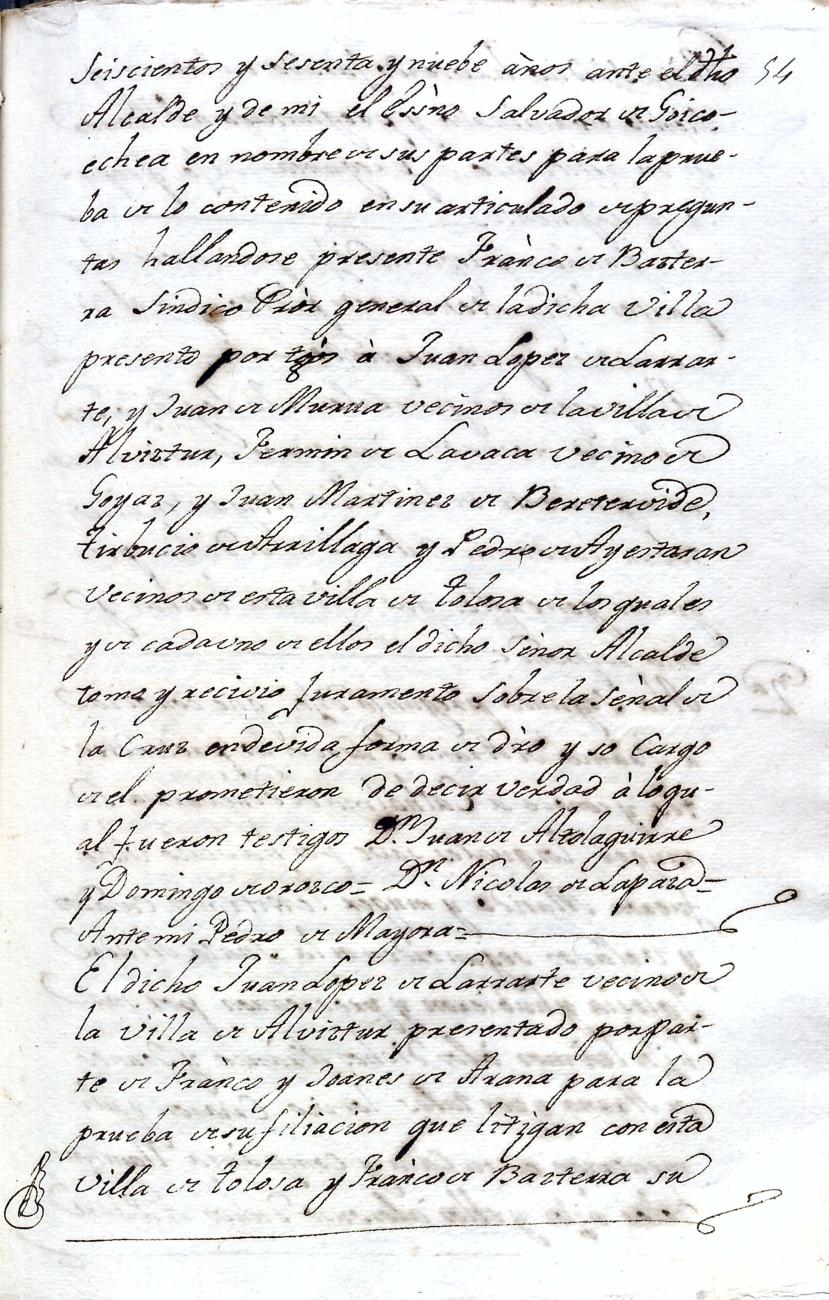 seiscientos y sesenta y nuebe años ante el dho 54
Alcalde y de mi el Essno Salvador de Goico-
echea en nombre de sus partes para la prue-
ba de lo contenido en su articulado de pregun-
tas hallandose presente Franco de Baster-
ra Sindico Pror general de la dicha Villa
presento por tgos à Juan Lopez de Larrar-
te, y Juan de Murua vecinos de la villa de
Alviztur, Fermin de Lavaca vecino de
Goyaz, y Juan Martinez de Beretervide,
tirbucio de Arrillaga y Pedro de Ayestaran
Vecinos de esta villa de tolosa de los quales
y de cada uno de ellos el dicho Señor Alcalde
tomo y recivio Juramento sobre la señal de
la Cruz en devida forma de dro y so Cargo
de el prometieron de decir verdad à lo qu-
al fueron testigos Dn. Juan de Altolaguirre
y Domingo de Orozco= Dn. Nicolas de Lapaza=
Ante mi Pedro de Mayora=
El dicho Juan Lopez de Larrarte vecino de
la villa de Alviztur presentado por par-
te de Franco y Joanes de Arana para la
prueba de su filiacion que litigan con esta
villa de tolosa y Franco de Basterra su